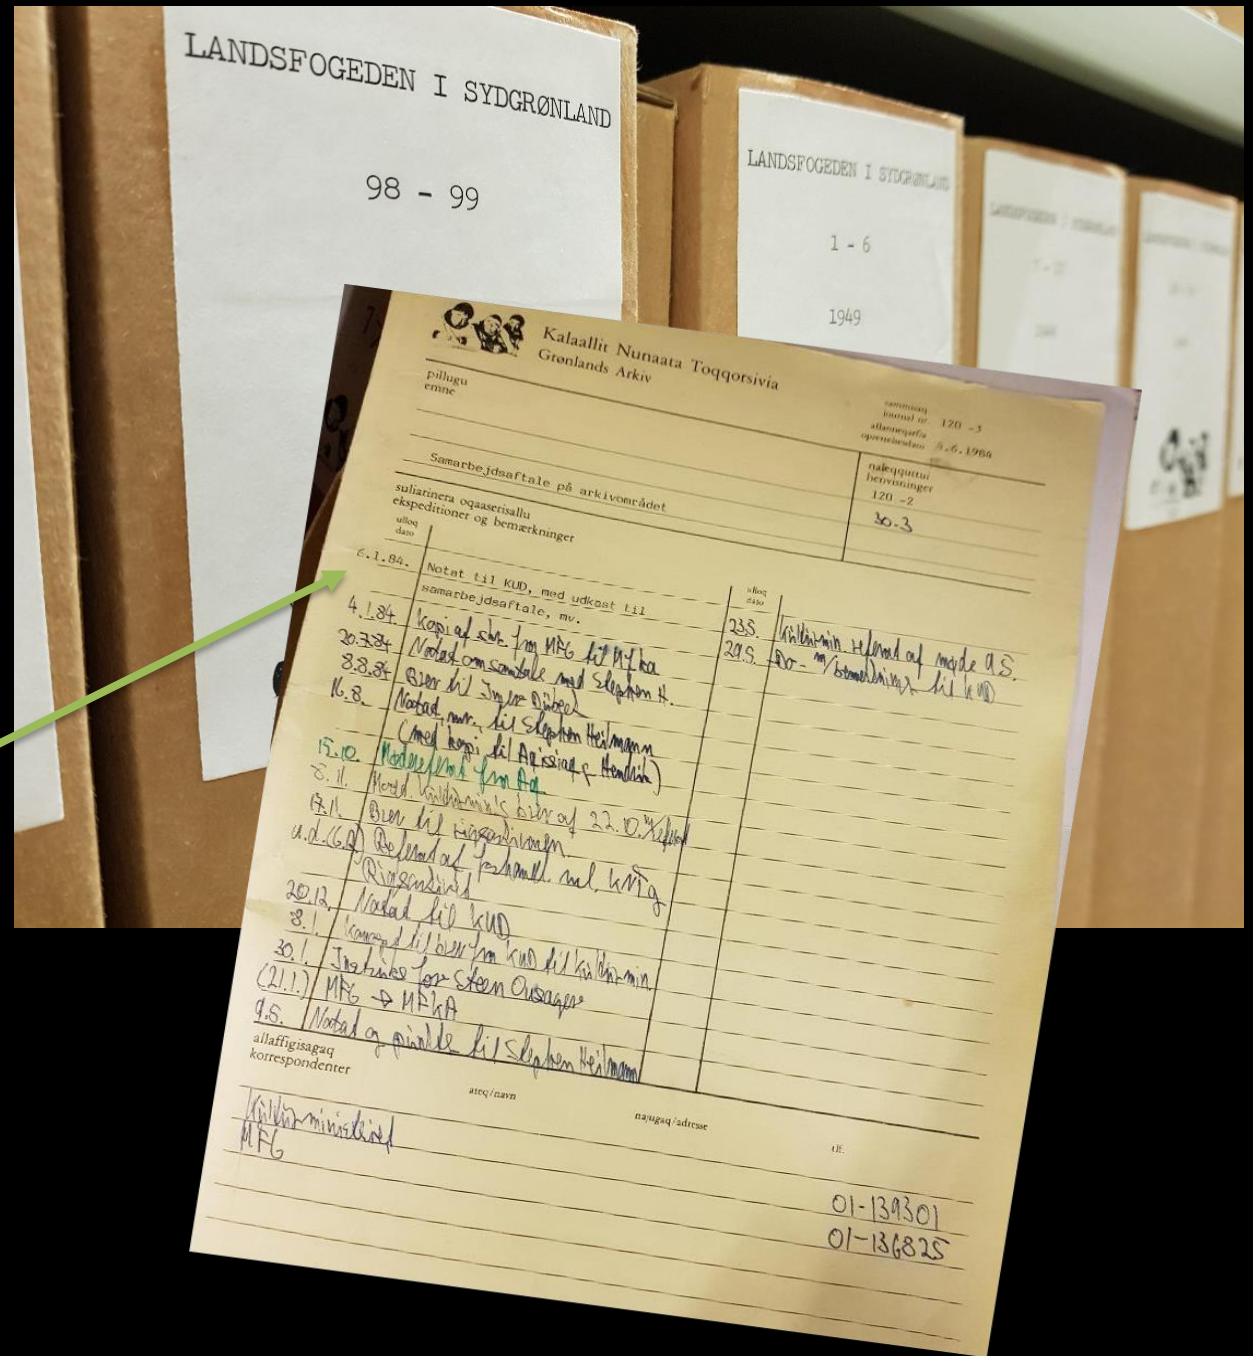 LANDSFOGEDEN I SYDGRØNLAND
98 - 99
LANDSFOGEDEN I SYDGRØNLAND
1 - 6
1949
Kalaallit Nunaata Toqqorsivia
Grønlands Arkiv
pillugu
emne
journal nr. 120 -3
5.6.1984
Samarbejdsaftale på arkivområdet
naleqquttut
henvisninger
120 -2
30-3
suliarinera oqaasertallu
ekspeditioner og bemærkninger
ulloq
dato
6.1.84. Notat til KUD, med udkast til
samarbejdsaftale, mv.
4.1.84 Kopi af skr. fra MFG til MfKA
20.7.84 Notat om samtale med Stephen H.
8.8.84 Brev til Inger Dübeck
16.8. Notat, mv. til Stephen Heilmann
(med kopi til Aqissiaq & Hendrik)
15.10. Mødereferat fra Aq.
8.11. brev af 22.10.
17.11. Brev til rigsarkivaren
u.d. Referat af forhandl. ml. KNT og
Rigsarkivet
20.12. Notat til KUD
8.1. Koncept til brev fra KUD til Kulturmin
30.1. Instruks for Steen Ousager
(21.1.) MFG → MFKA
9.5. Notat og til Stephen Heilmann
ulloq
dato
23.5. Kulturmin referat af møde 9.5.
29.5. Do - m/bemærkninger til KUD
allaffigisagaq
korrespondenter
ateq/navn
najugaq/adresse
tlf.
Kulturministeriet
01-139301
MFG
01-136825